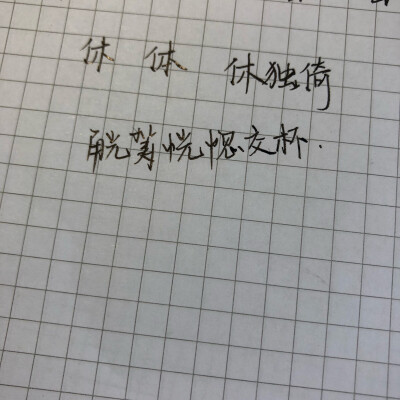 休 休 休独倚
觥筹恍惚交杯.